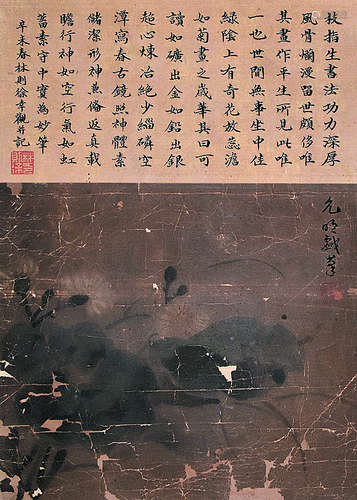 枝指生書法功力深厚
風骨爛漫留世頗侈唯
其畫作平生所見此唯
一也世間無事生中佳
緑陰上有奇花放蕊澹
如菊畫之歲華其曰可
讀如礦出金如鉛出銀
超心煉冶絕少緇磷空
潭寫春古鏡照神體素
儲潔形神兼備返真載
瞻行神如空行氣如虹
蓄素守中寶為妙筆
辛未春林則徐幸觀并記
允明戲筆